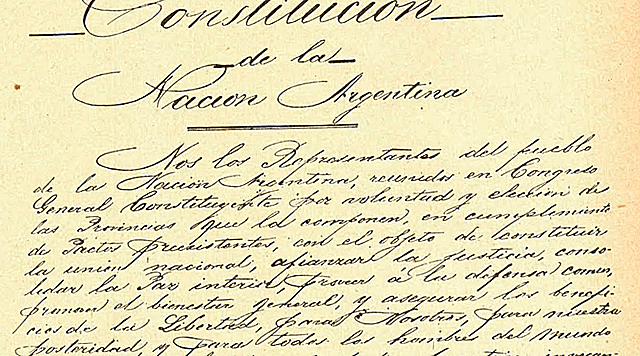 Constitucion
de la
Nacion Argentina
Nos los Representantes del pueblo
de la Nacion Argentina, reunidos en Congreso
General Constituyente por voluntad y eleccion de
las Provincias que la componen, en cumplimiento
de Pactos preexistentes, con el objeto de constituir
la union nacional, afianzar la justicia, conso-
lidar la Paz interior, proveer á la difensa comun,
promover el bienestar general, y asegurar los benefi-
cios de la Libertad, para Nosotros, para nuestra
posteridad, y para todos los hombres del mundo